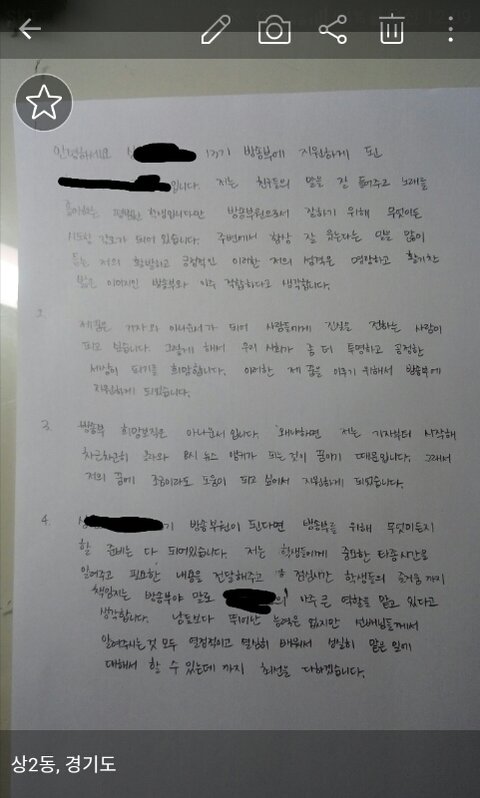 안녕하세요 1기 방송부에 지원하게 된
입니다. 저는 친구들의 말을 잘 들어주고 노래를
학생입니다만 방송부원으로서 잘하기 위해 무엇이든
되어 있습니다. 주변에서 항상 잘 웃는다는 말을 많이
듣는 저의 활발하고 긍정적인 이러한 저의 성격은 명랑하고 활기찬
밝은 이미지인 방송부와 아주 적합하다고 생각합니다.
2. 제 꿈은 기자와 아나운서가 되어 사람들에게 진실을 전하는 사람이
되고 싶습니다. 그렇게 해서 우리 사회가 좀 더 투명하고 공정한
세상이 되기를 희망합니다. 이러한 제 꿈을 이루기 위해서 방송부에
지원하게 되었습니다.
3. 방송부 희망보직은 아나운서 입니다. 왜냐하면 저는 기자부터 시작해
차근차근히 올라와 8시 뉴스 앵커가 되는것이 꿈이기 때문입니다. 그래서
저의 꿈에 조금이라도 도움이 되고 싶어서 지원하게 되었습니다.
4. 기 방송부원이 된다면 방송부를 위해 무엇이든지
할 준비는 다 되어있습니다. 저는 학생들에게 중요한 타종시간을
알려주고 필요한 내용을 전달해주고 점심시간 학생들의 즐거움 까지
책임지는 방송부야 말로 의 아주 큰 역할을 맡고 있다고
생각합니다. 남들보다 뛰어난 능력은 없지만 선배님들께서
알려주시는 것 모두 열정적이고 열심히 배워서 성실히 맡은 일에
대해서 할 수 있는데 까지 최선을 다하겠습니다.
상2동, 경기도